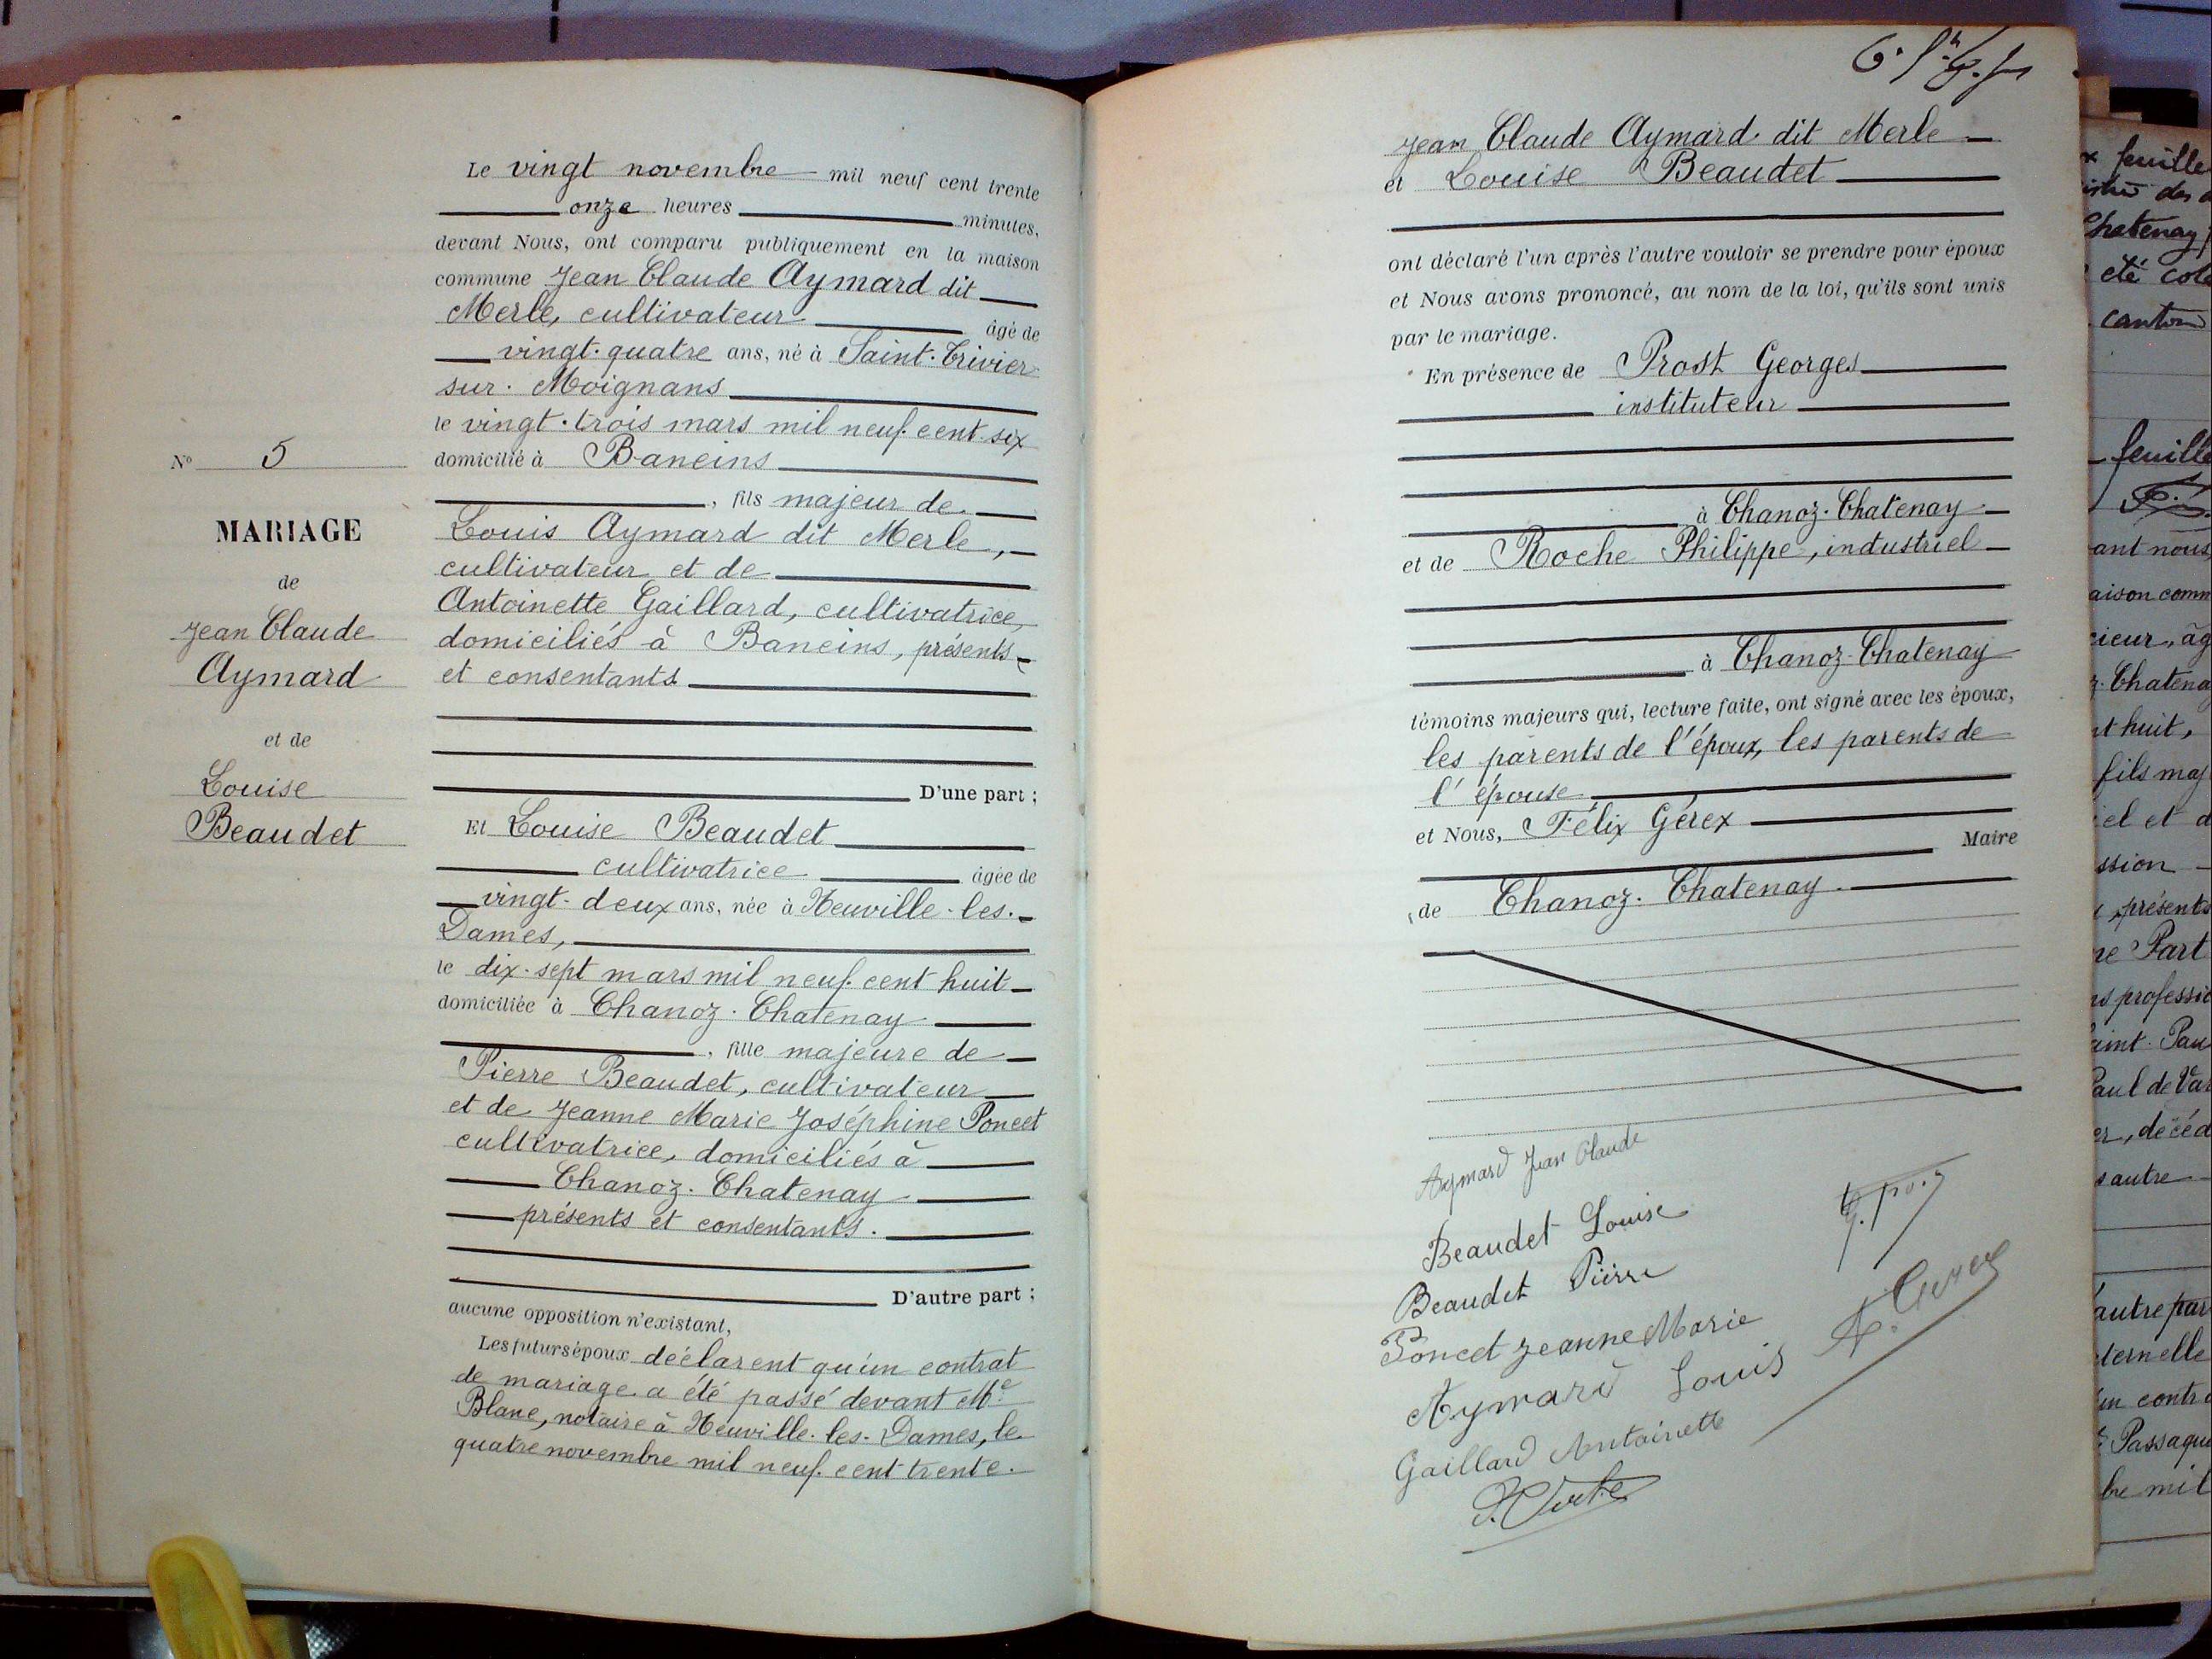 N° 5
MARIAGE
de
Jean Claude
Aymard
et de
Louise
Beaudet
Le vingt novembre mil neuf cent trente
onze heures minutes,
devant Nous, ont comparu publiquement en la maison
commune Jean Claude Aymard dit
Merle, cultivateur âgé de
vingt-quatre ans, né à Saint-Trivier
sur-Moignans
le vingt-trois mars mil neuf cent six
domicilié à Baneins
, fils majeur de
Louis Aymard dit Merle,
cultivateur et de
Antoinette Gaillard, cultivatrice,
domiciliés à Baneins, présents
et consentants
D'une part ;
Et Louise Beaudet
cultivatrice âgée de
vingt-deux ans, née à Neuville-les-
Dames,
le dix-sept mars mil neuf cent huit
domiciliée à Chanoz-Chatenay
, fille majeure de
Pierre Beaudet, cultivateur
et de Jeanne Marie Joséphine Poncet
cultivatrice, domiciliés à
Chanoz-Chatenay
présents et consentants.
D'autre part ;
aucune opposition n'existant,
Les futurs époux déclarent qu'un contrat
de mariage a été passé devant Me
Blanc, notaire à Neuville-les-Dames, le
quatre novembre mil neuf cent trente.
Jean Claude Aymard dit Merle
et Louise Beaudet
ont déclaré l'un après l'autre vouloir se prendre pour époux
et Nous avons prononcé, au nom de la loi, qu'ils sont unis
par le mariage.
En présence de Prost Georges
instituteur
à Chanoz-Chatenay
et de Roche Philippe, industriel
à Chanoz-Chatenay
témoins majeurs qui, lecture faite, ont signé avec les époux,
les parents de l'époux, les parents de
l'épouse
et Nous, Félix Gérex
Maire
de Chanoz-Chatenay.
Aymard Jean Claude
Beaudet Louise
Beaudet Pierre
Poncet Jeanne Marie
Aymard Louis
Gaillard Antoinette
feuille
Chatenay
été
canton
feuille
ant nous
aison comm
Chatena
nt huit,
fils maj
el et d
ssion
présents
ne Part
Paul de Var
décéd
autre
autre par
ternelle
un contra
Passaqu
bre mil